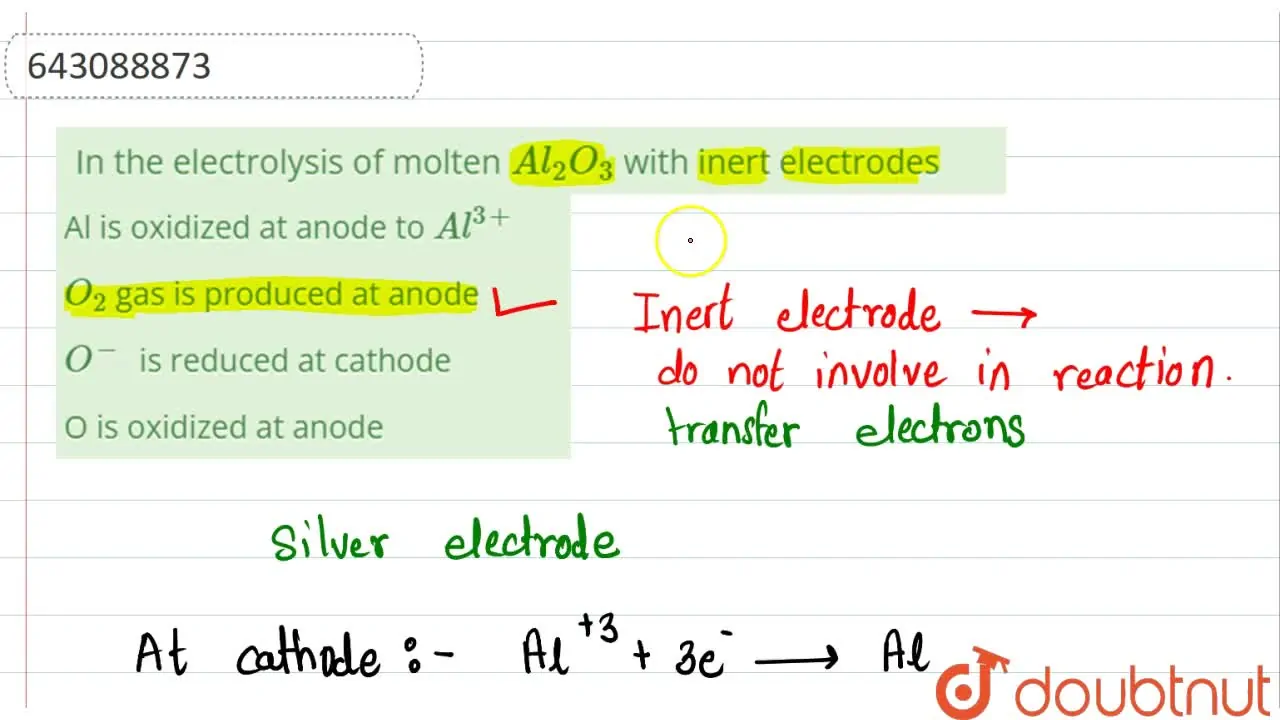 643088873
In the electrolysis of molten Al₂O₃ with inert electrodes
Al is oxidized at anode to Al³⁺
O₂ gas is produced at anode
O⁻ is reduced at cathode
O is oxidized at anode
Inert electrode →
do not involve in reaction.
transfer electrons
Silver electrode
At cathode :- Al⁺³ + 3e⁻ → Al
doubtnut